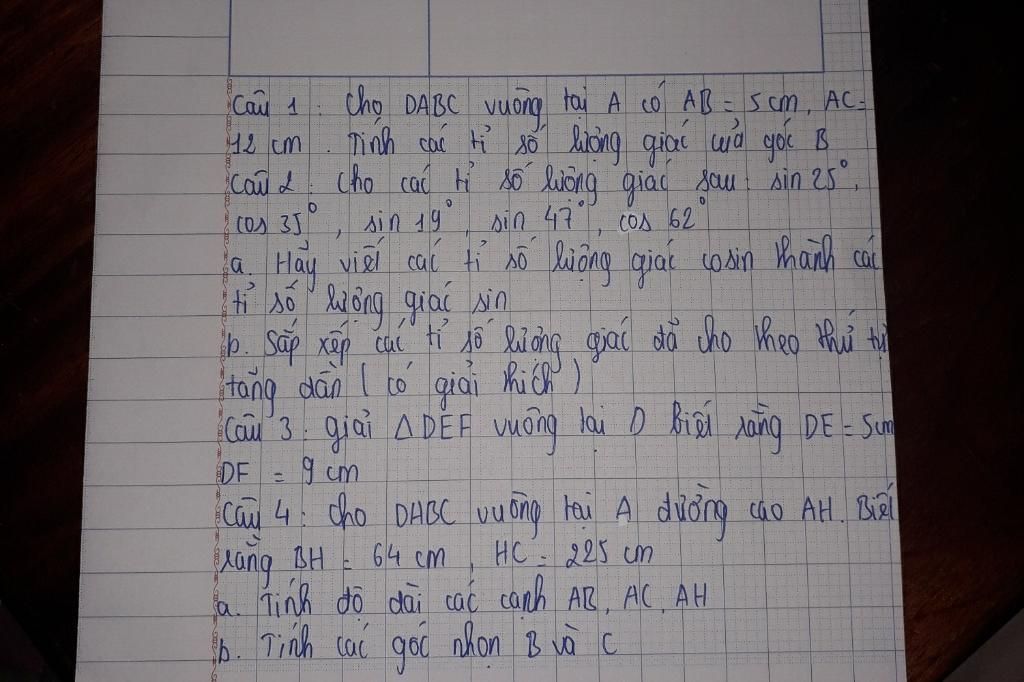 Câu 1 : Cho DABC vuông tại A có AB = 5 cm, AC =
12 cm . Tính các tỉ số lượng giác của góc B
Câu 2 : Cho các tỉ số lượng giác sau : sin 25°,
cos 35° , sin 19° , sin 47° , cos 62°
a. Hãy viết các tỉ số lượng giác cosin thành các
tỉ số lượng giác sin
b. Sắp xếp các tỉ số lượng giác đã cho theo thứ tự
tăng dần ( có giải thích )
Câu 3 : giải △DEF vuông tại D Biết rằng DE = 5cm
DF = 9 cm
Câu 4 : Cho DABC vuông tại A đường cao AH. Biết
rằng BH = 64 cm , HC = 225 cm
a. Tính độ dài các cạnh AB, AC, AH
b. Tính các góc nhọn B và C